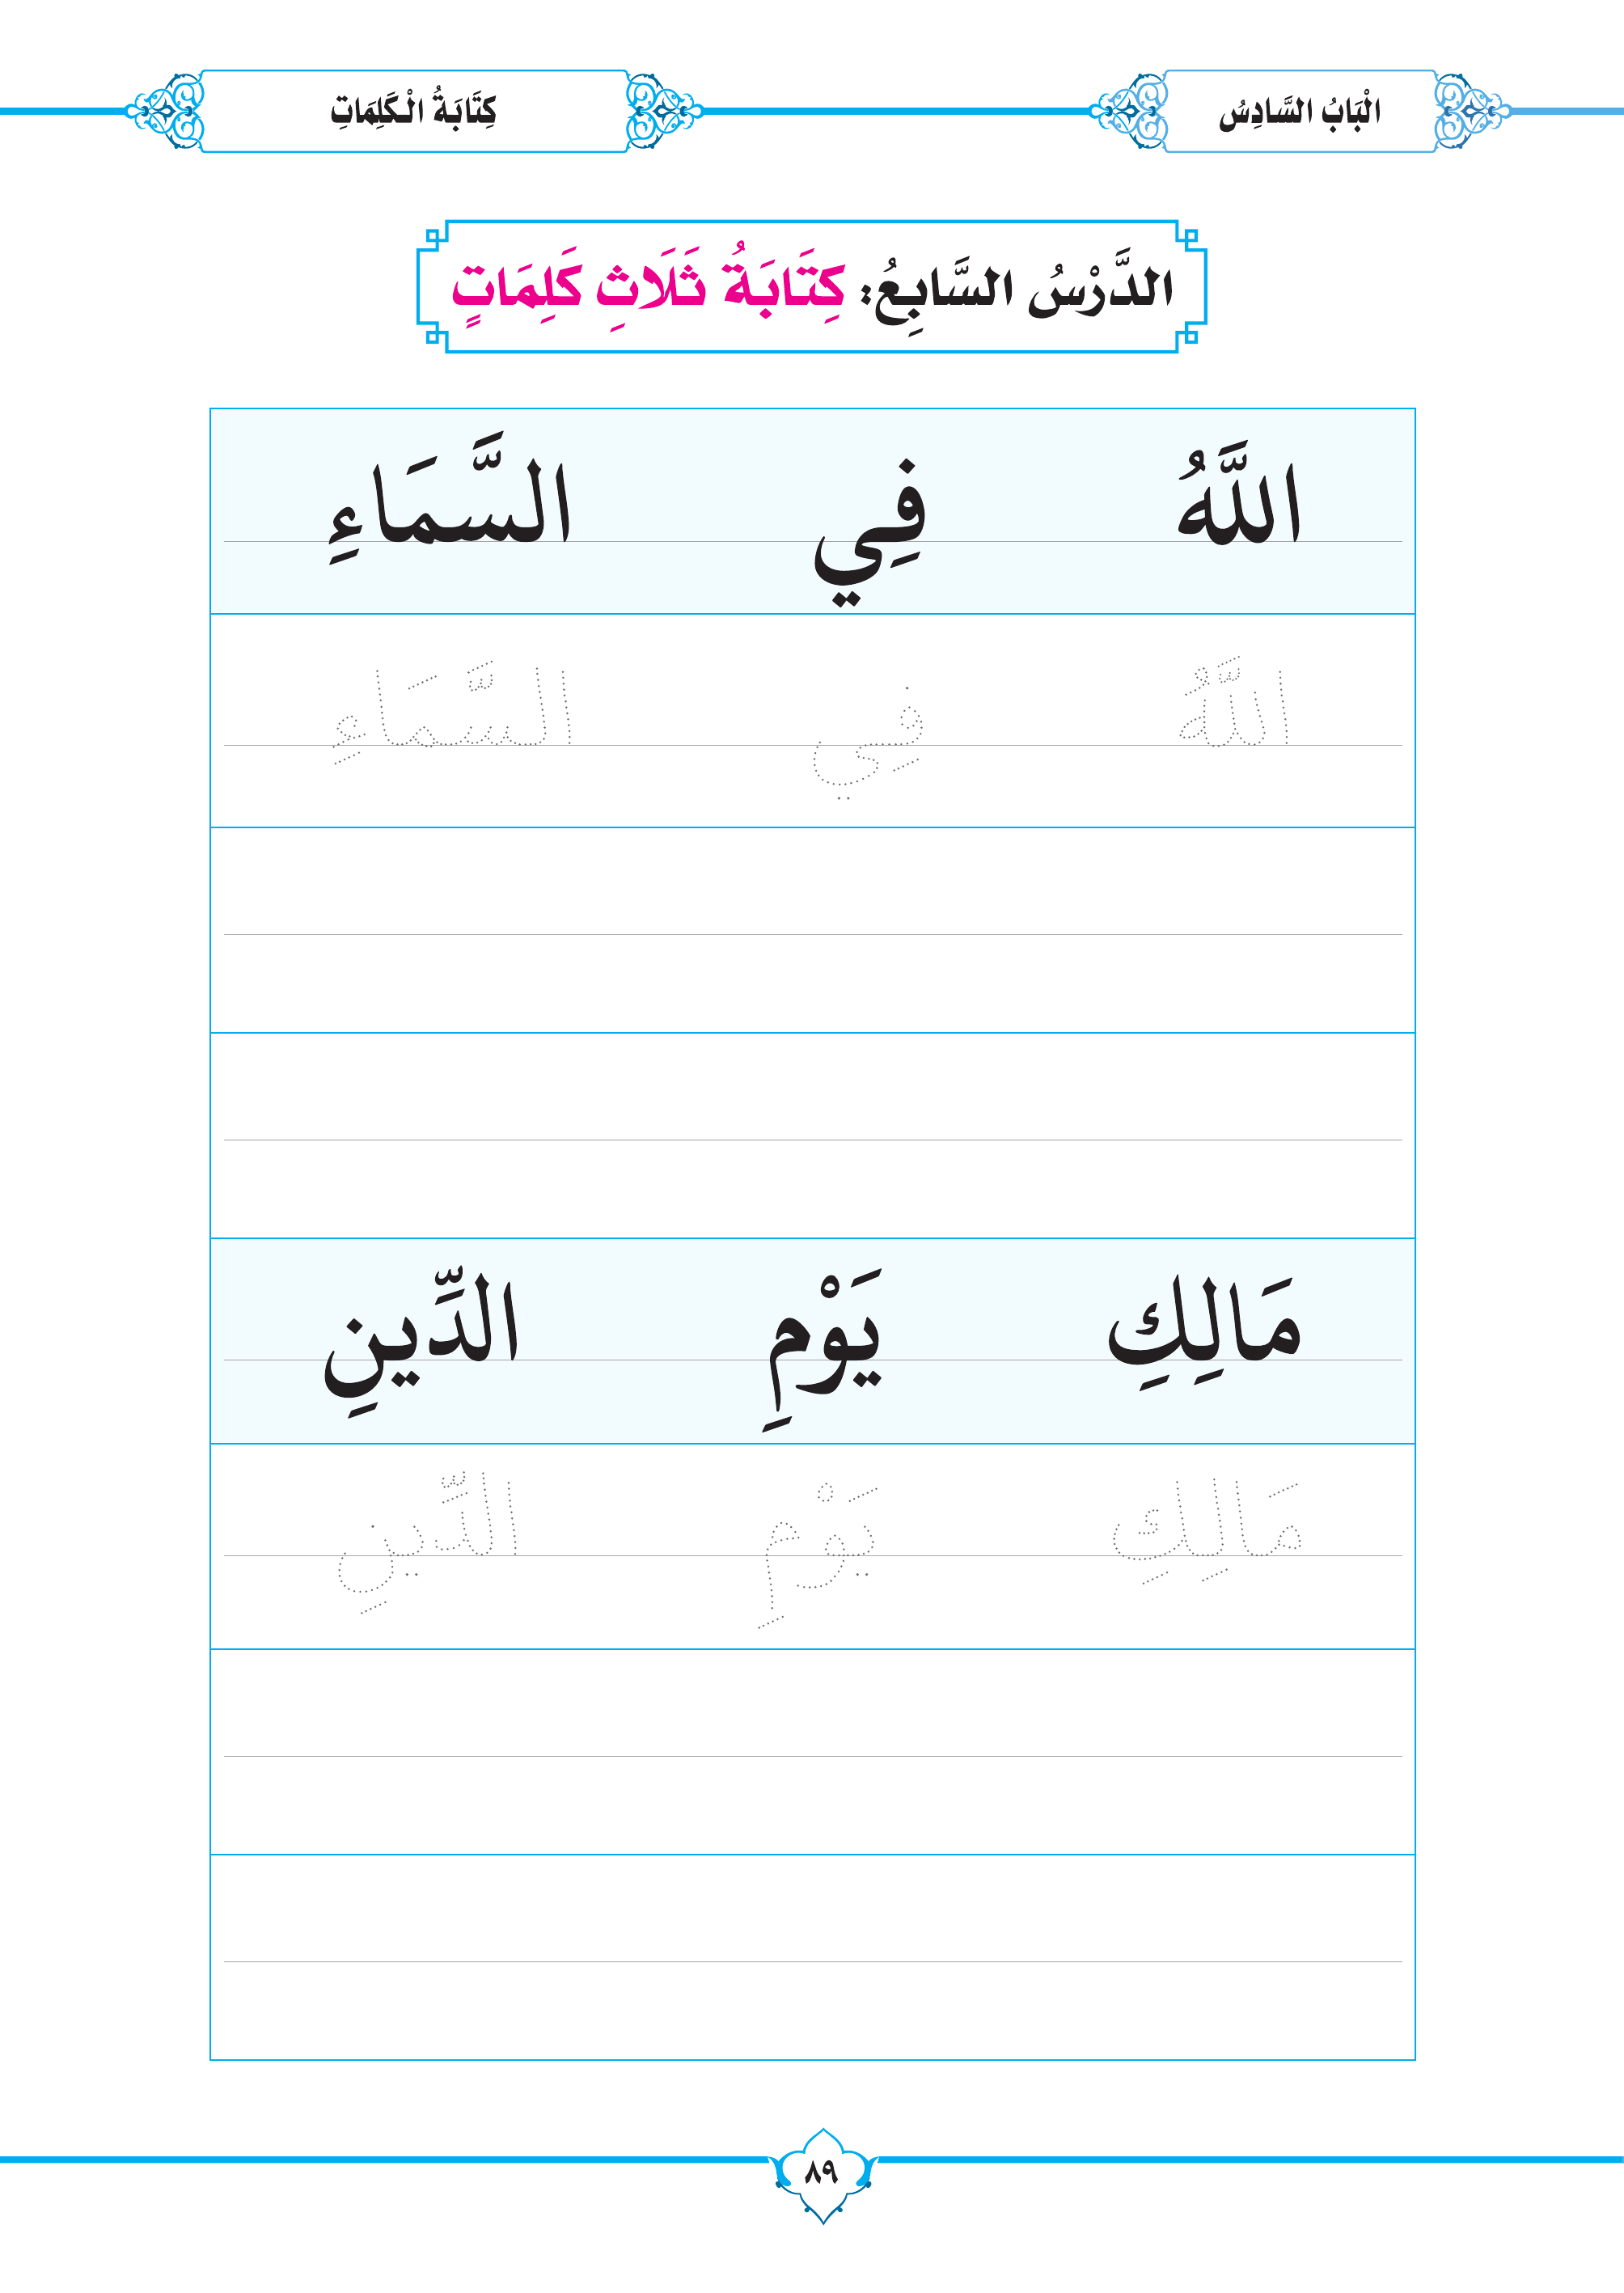 الْبَابُ السَّادِسُ
كِتَابَةُ الْكَلِمَاتِ
الدَّرْسُ السَّابِعُ: كِتَابَةُ ثَلَاثِ كَلِمَاتٍ
اللَّهُ فِي السَّمَاءِ
اللَّهُ فِي السَّمَاءِ
مَالِكِ يَوْمِ الدِّينِ
مَالِكِ يَوْمِ الدِّينِ
٨٩